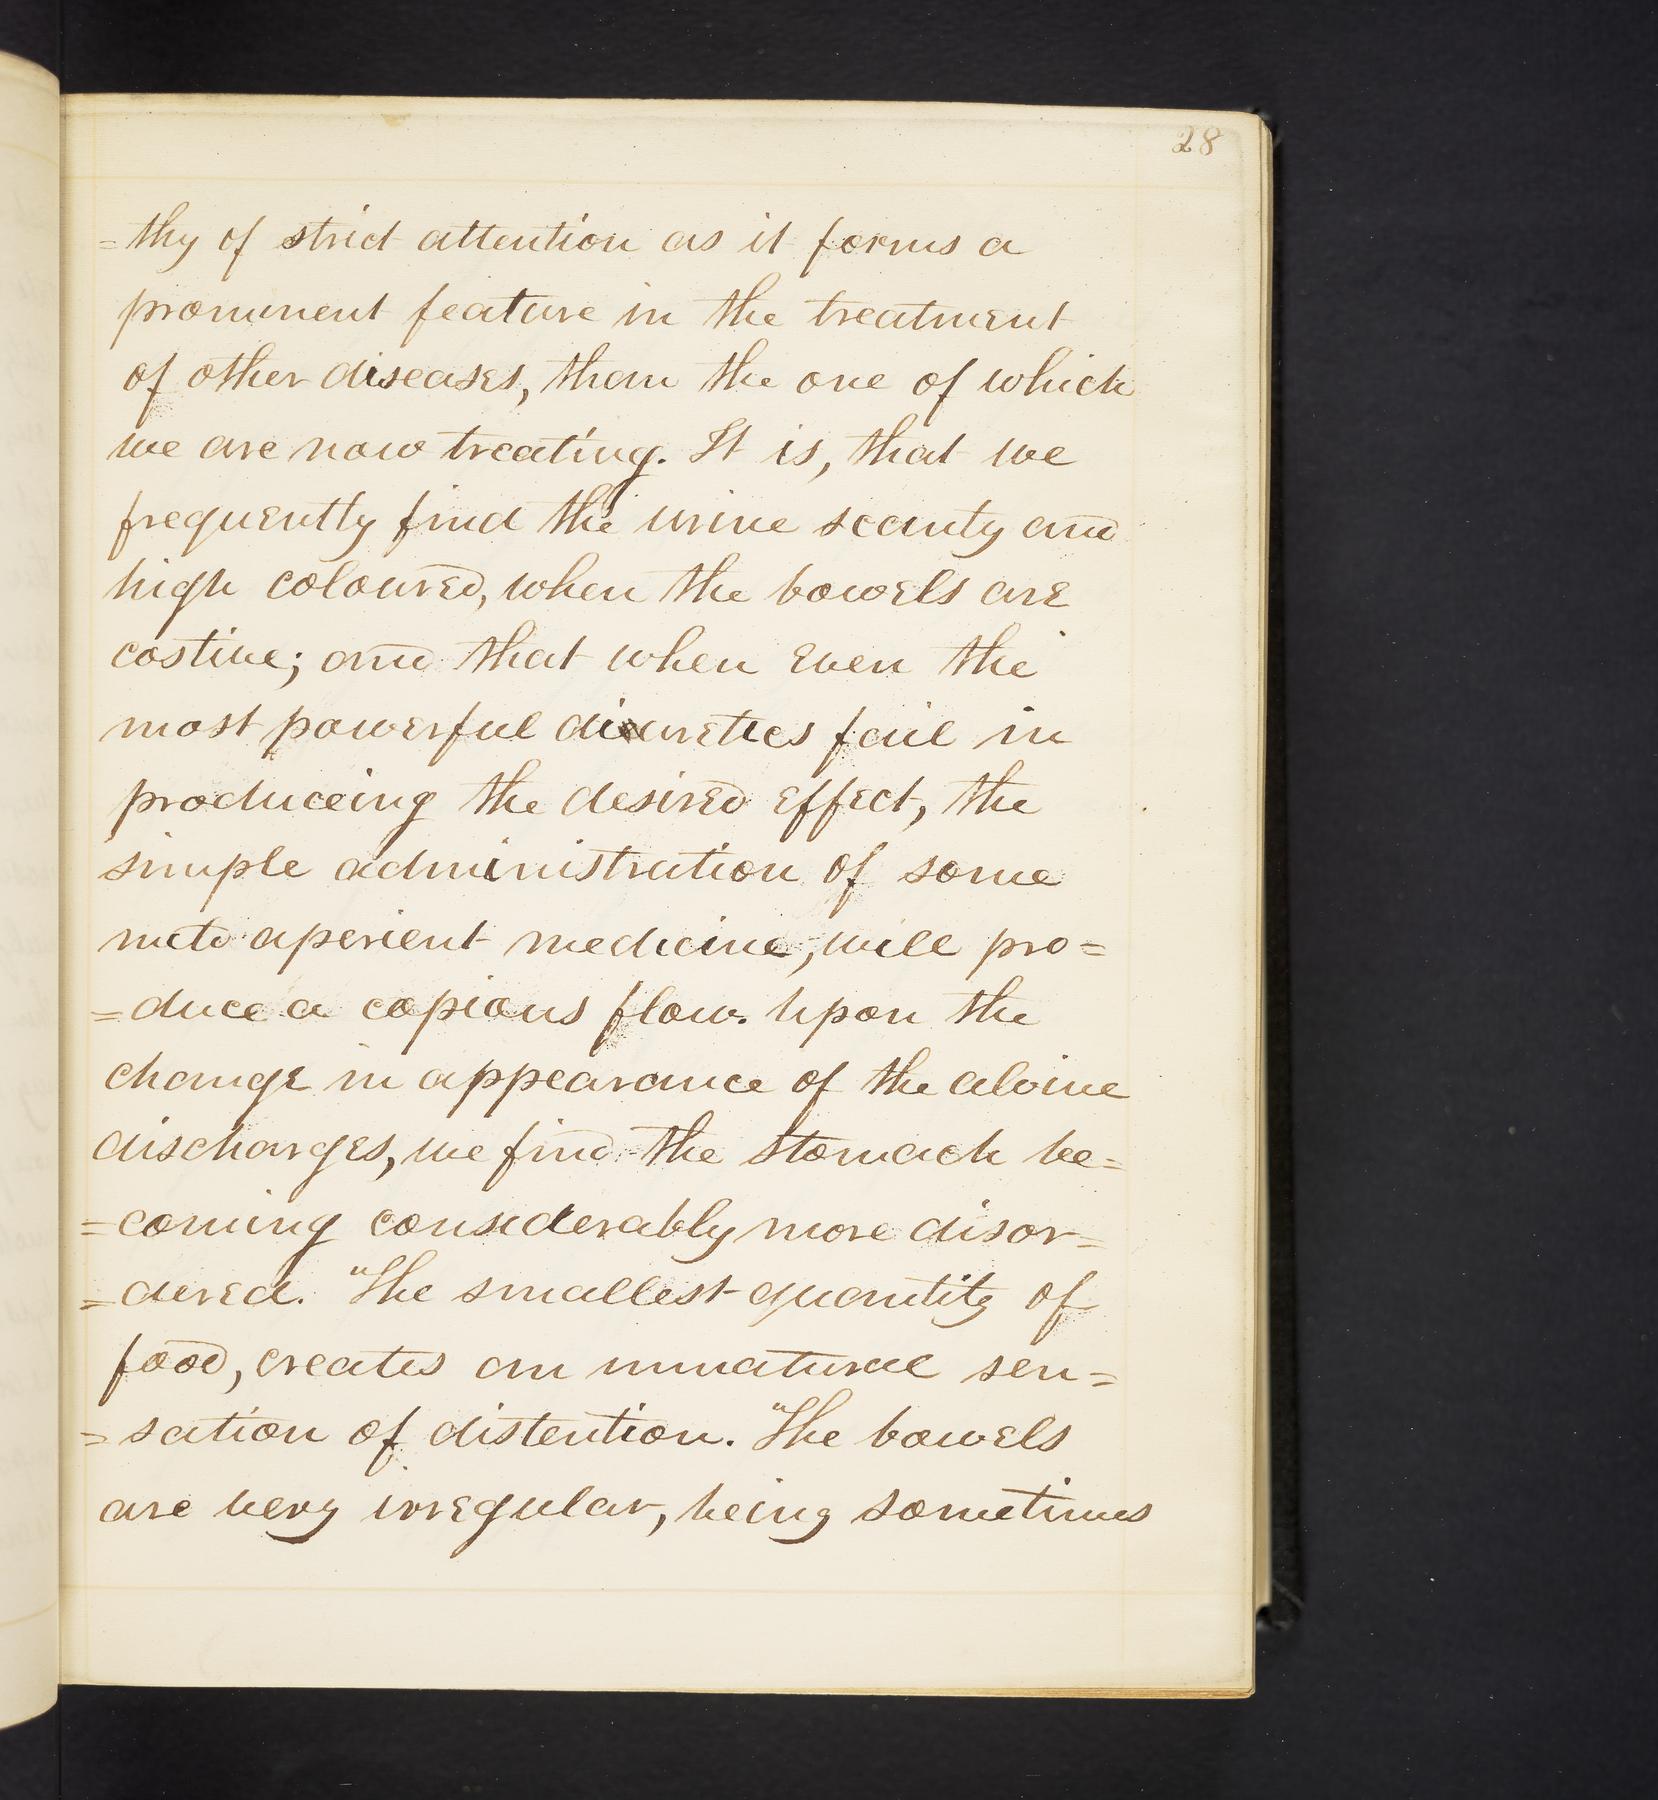 28
=thy of strict attention as it forms a
prominent feature in the treatment
of other diseases, than the one of which
we are now treating. It is, that we
frequently find the urine scanty and
high coloured, when the bowels are
costive; and that when even the
most powerful diuretics fail in
produceing the desired effect, the
simple administration of some
aperient medicine, will pro=
=duce a copious flow. Upon the
change in appearance of the alvine
discharges, we find the stomach be=
=coming considerably more disor=
=dered. The smallest quantity of
food, creates an unnatural sen=
=sation of distention. The bowels
are very irregular, being sometimes